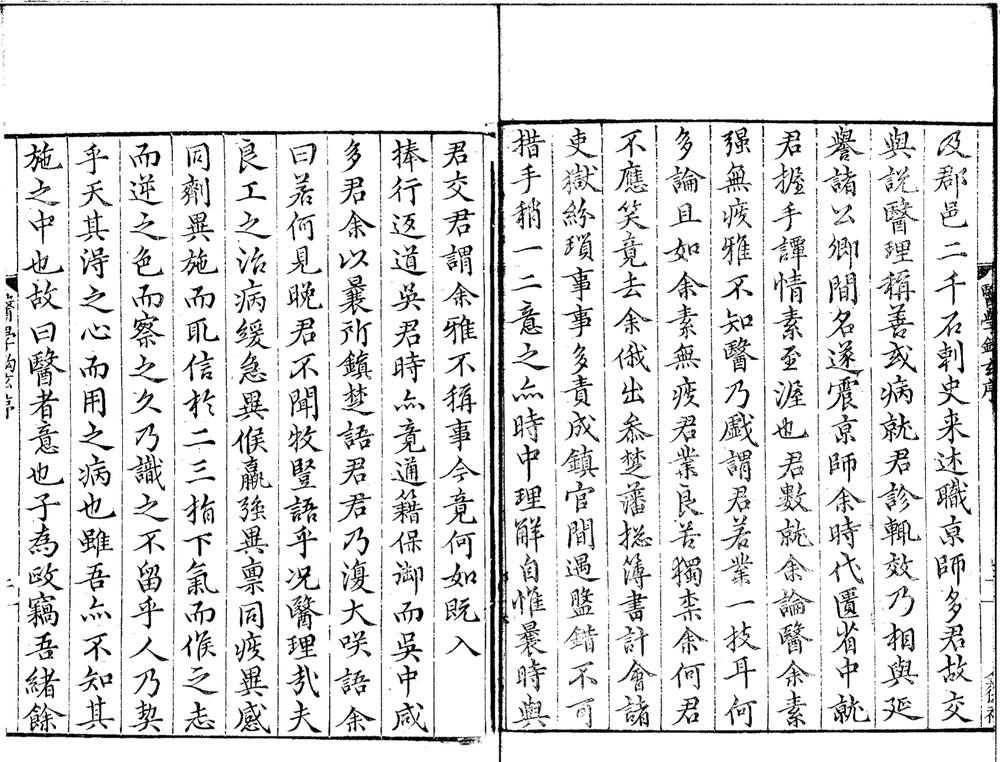 及郡邑二千石刺史来述職京師多君故交
與說醫理稱善或病就君診輒效乃相與延
譽諸公卿間名遂震京師余時代匱省中就
君握手譚情素至渥也君數就余論醫余素
强無疲雅不知醫乃戯謂君若業一技耳何
多論且如余素無疲君業良苦獨柰余何君
不應笑竟去余俄出叅楚藩捴簿書計會諸
吏獄紛瑣事事多責成鎮官間遇盤錯不可
措手稍一二意之亦時中理解自惟曩時與
君交君謂余雅不稱事今竟何如既入
捧行返道吳君時亦竟通籍保御而吳中咸
多君余以曩所鎮楚語君君乃復大咲語余
曰若何見晚君不聞牧豎語乎况醫理㢤夫
良工之治病緩急異候羸强異禀同疲異感
同劑異施而取信於二三指下氣而候之志
而逆之色而察之久乃識之不留乎人乃契
乎天其得之心而用之病也雖吾亦不知其
施之中也故曰醫者意也子為政竊吾緒餘
醫學鈎玄序
醫學鈎玄序